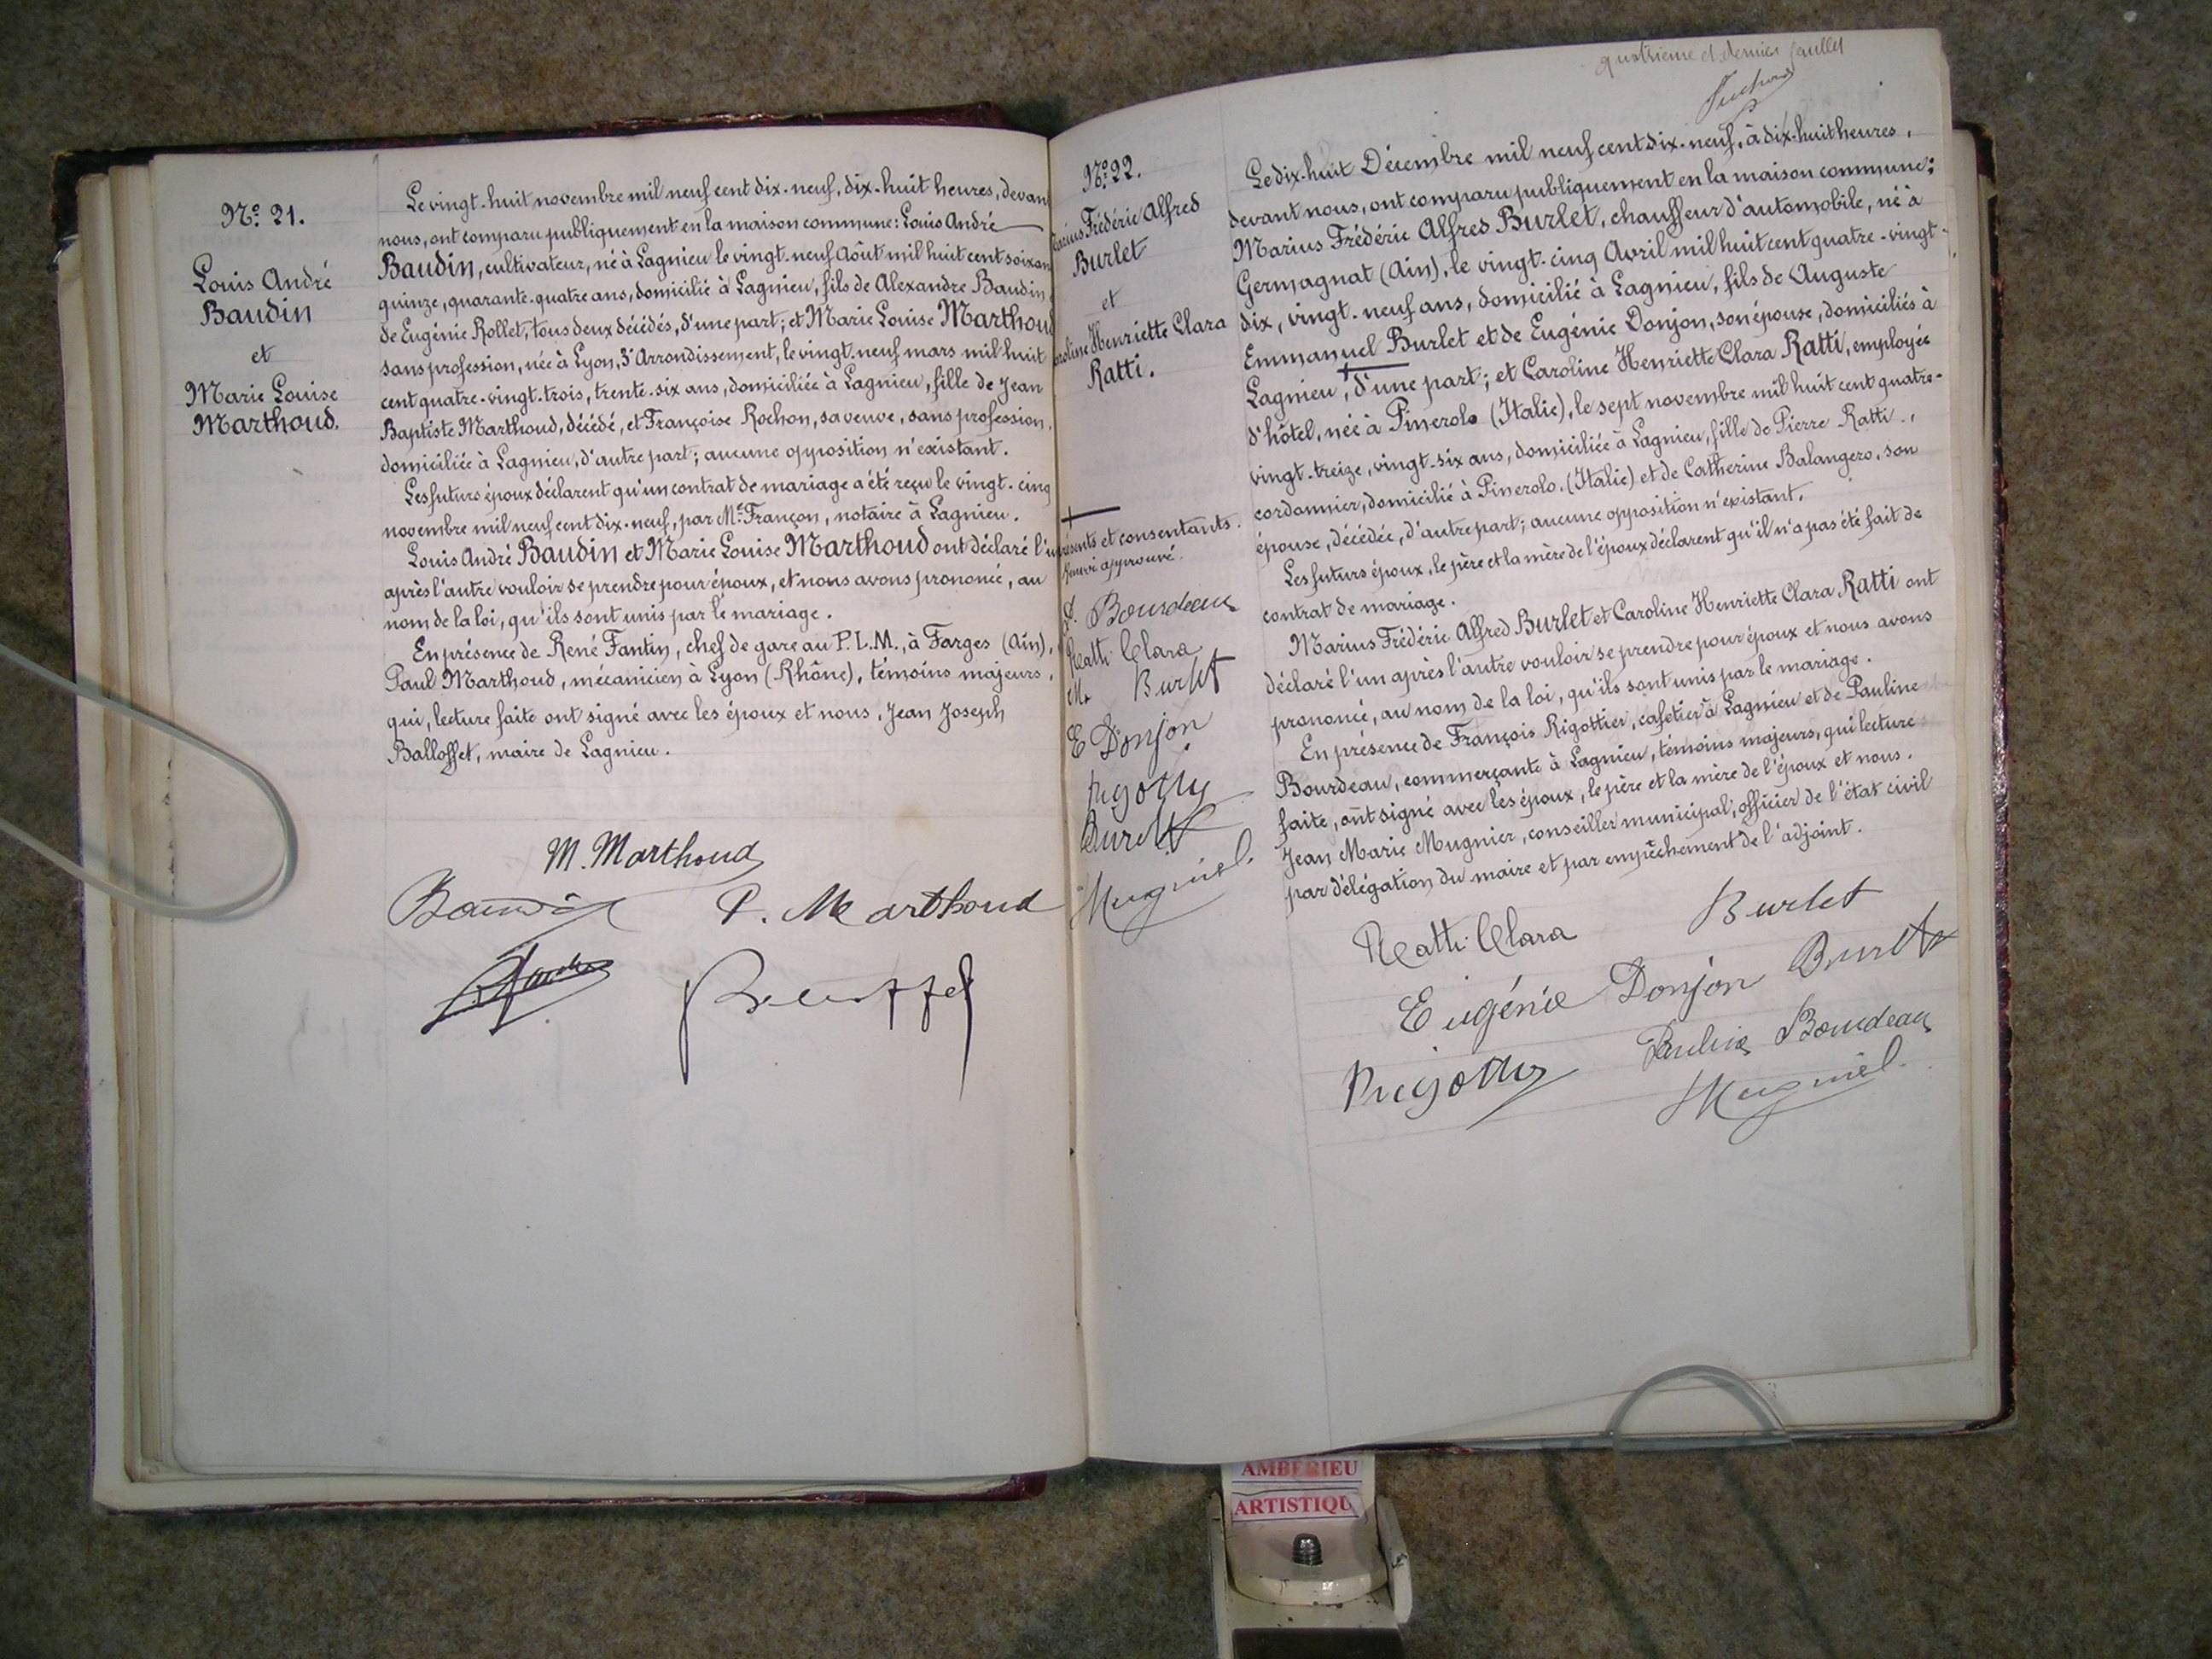 Nº 21.
Louis André
Baudin
et
Marie Louise
Marthoud.
Le vingt-huit novembre mil neuf cent dix-neuf, dix-huit heures, devan
nous, ont comparu publiquement en la maison commune: Louis André
Baudin, cultivateur, né à Lagnieu le vingt-neuf Août mil huit cent soixan
quinze, quarante-quatre ans, domicilié à Lagnieu, fils de Alexandre Baudin
de Eugénie Rollet, tous deux décédés, d'une part; et Marie Louise Marthoud
sans profession, née à Lyon, 3e Arrondissement, le vingt-neuf mars mil huit
cent quatre-vingt-trois, trente-six ans, domiciliée à Lagnieu, fille de Jean
Baptiste Marthoud, décédé, et Françoise Rochon, sa veuve, sans profession,
domiciliée à Lagnieu, d'autre part; aucune opposition n'existant.
Les futurs époux déclarent qu'un contrat de mariage a été reçu le vingt-cinq
novembre mil neuf cent dix-neuf, par Me Françon, notaire à Lagnieu.
Louis André Baudin et Marie Louise Marthoud ont déclaré l'u
après l'autre vouloir se prendre pour époux, et nous avons prononcé, au
nom de la loi, qu'ils sont unis par le mariage.
En présence de René Fantin, chef de gare au P.L.M., à Farges (Ain),
Paul Marthoud, mécanicien à Lyon (Rhône), témoins majeurs,
qui, lecture faite ont signé avec les époux et nous, Jean Joseph
Balloffet, maire de Lagnieu.
M. Marthoud
Baudin P. Marthoud
quatrième et dernier feuillet
Nº 22.
arius Frédéric Alfred
Burlet
et
aroline Henriette Clara
Ratti.
résents et consentants.
Renvoi approuvé.
P. Bourdeau
Ratti Clara
Burlet
E Donjon
Rigottier
Burlet
Mugnier
Le dix-huit Décembre mil neuf cent dix-neuf, à dix-huit heures,
devant nous, ont comparu publiquement en la maison commune:
Marius Frédéric Alfred Burlet, chauffeur d'automobile, né à
Germagnat (Ain), le vingt-cinq Avril mil huit cent quatre-vingt-
dix, vingt-neuf ans, domicilié à Lagnieu, fils de Auguste
Emmanuel Burlet et de Eugénie Donjon, son épouse, domiciliés à
Lagnieu, d'une part; et Caroline Henriette Clara Ratti, employée
d'hôtel, née à Pinerolo (Italie), le sept novembre mil huit cent quatre-
vingt-treize, vingt-six ans, domiciliée à Lagnieu, fille de Pierre Ratti,
cordonnier, domicilié à Pinerolo. (Italie) et de Catherine Balangero, son
épouse, décédée, d'autre part; aucune opposition n'existant.
Les futurs époux, le père et la mère de l'époux déclarent qu'il n'a pas été fait de
contrat de mariage.
Marius Frédéric Alfred Burlet et Caroline Henriette Clara Ratti ont
déclaré l'un après l'autre vouloir se prendre pour époux et nous avons
prononcé, au nom de la loi, qu'ils sont unis par le mariage.
En présence de François Rigottier, cafetier à Lagnieu et de Pauline
Bourdeau, commerçante à Lagnieu, témoins majeurs, qui lecture
faite, ont signé avec les époux, le père et la mère de l'époux et nous.
Jean Marie Mugnier, conseiller municipal, officier de l'état civil
par délégation du maire et par empêchement de l'adjoint.
Ratti Clara Burlet
Eugénie Donjon Burlet
Rigottier Pauline Bourdeau
Mugnier
AMBERIEU
ARTISTIQU